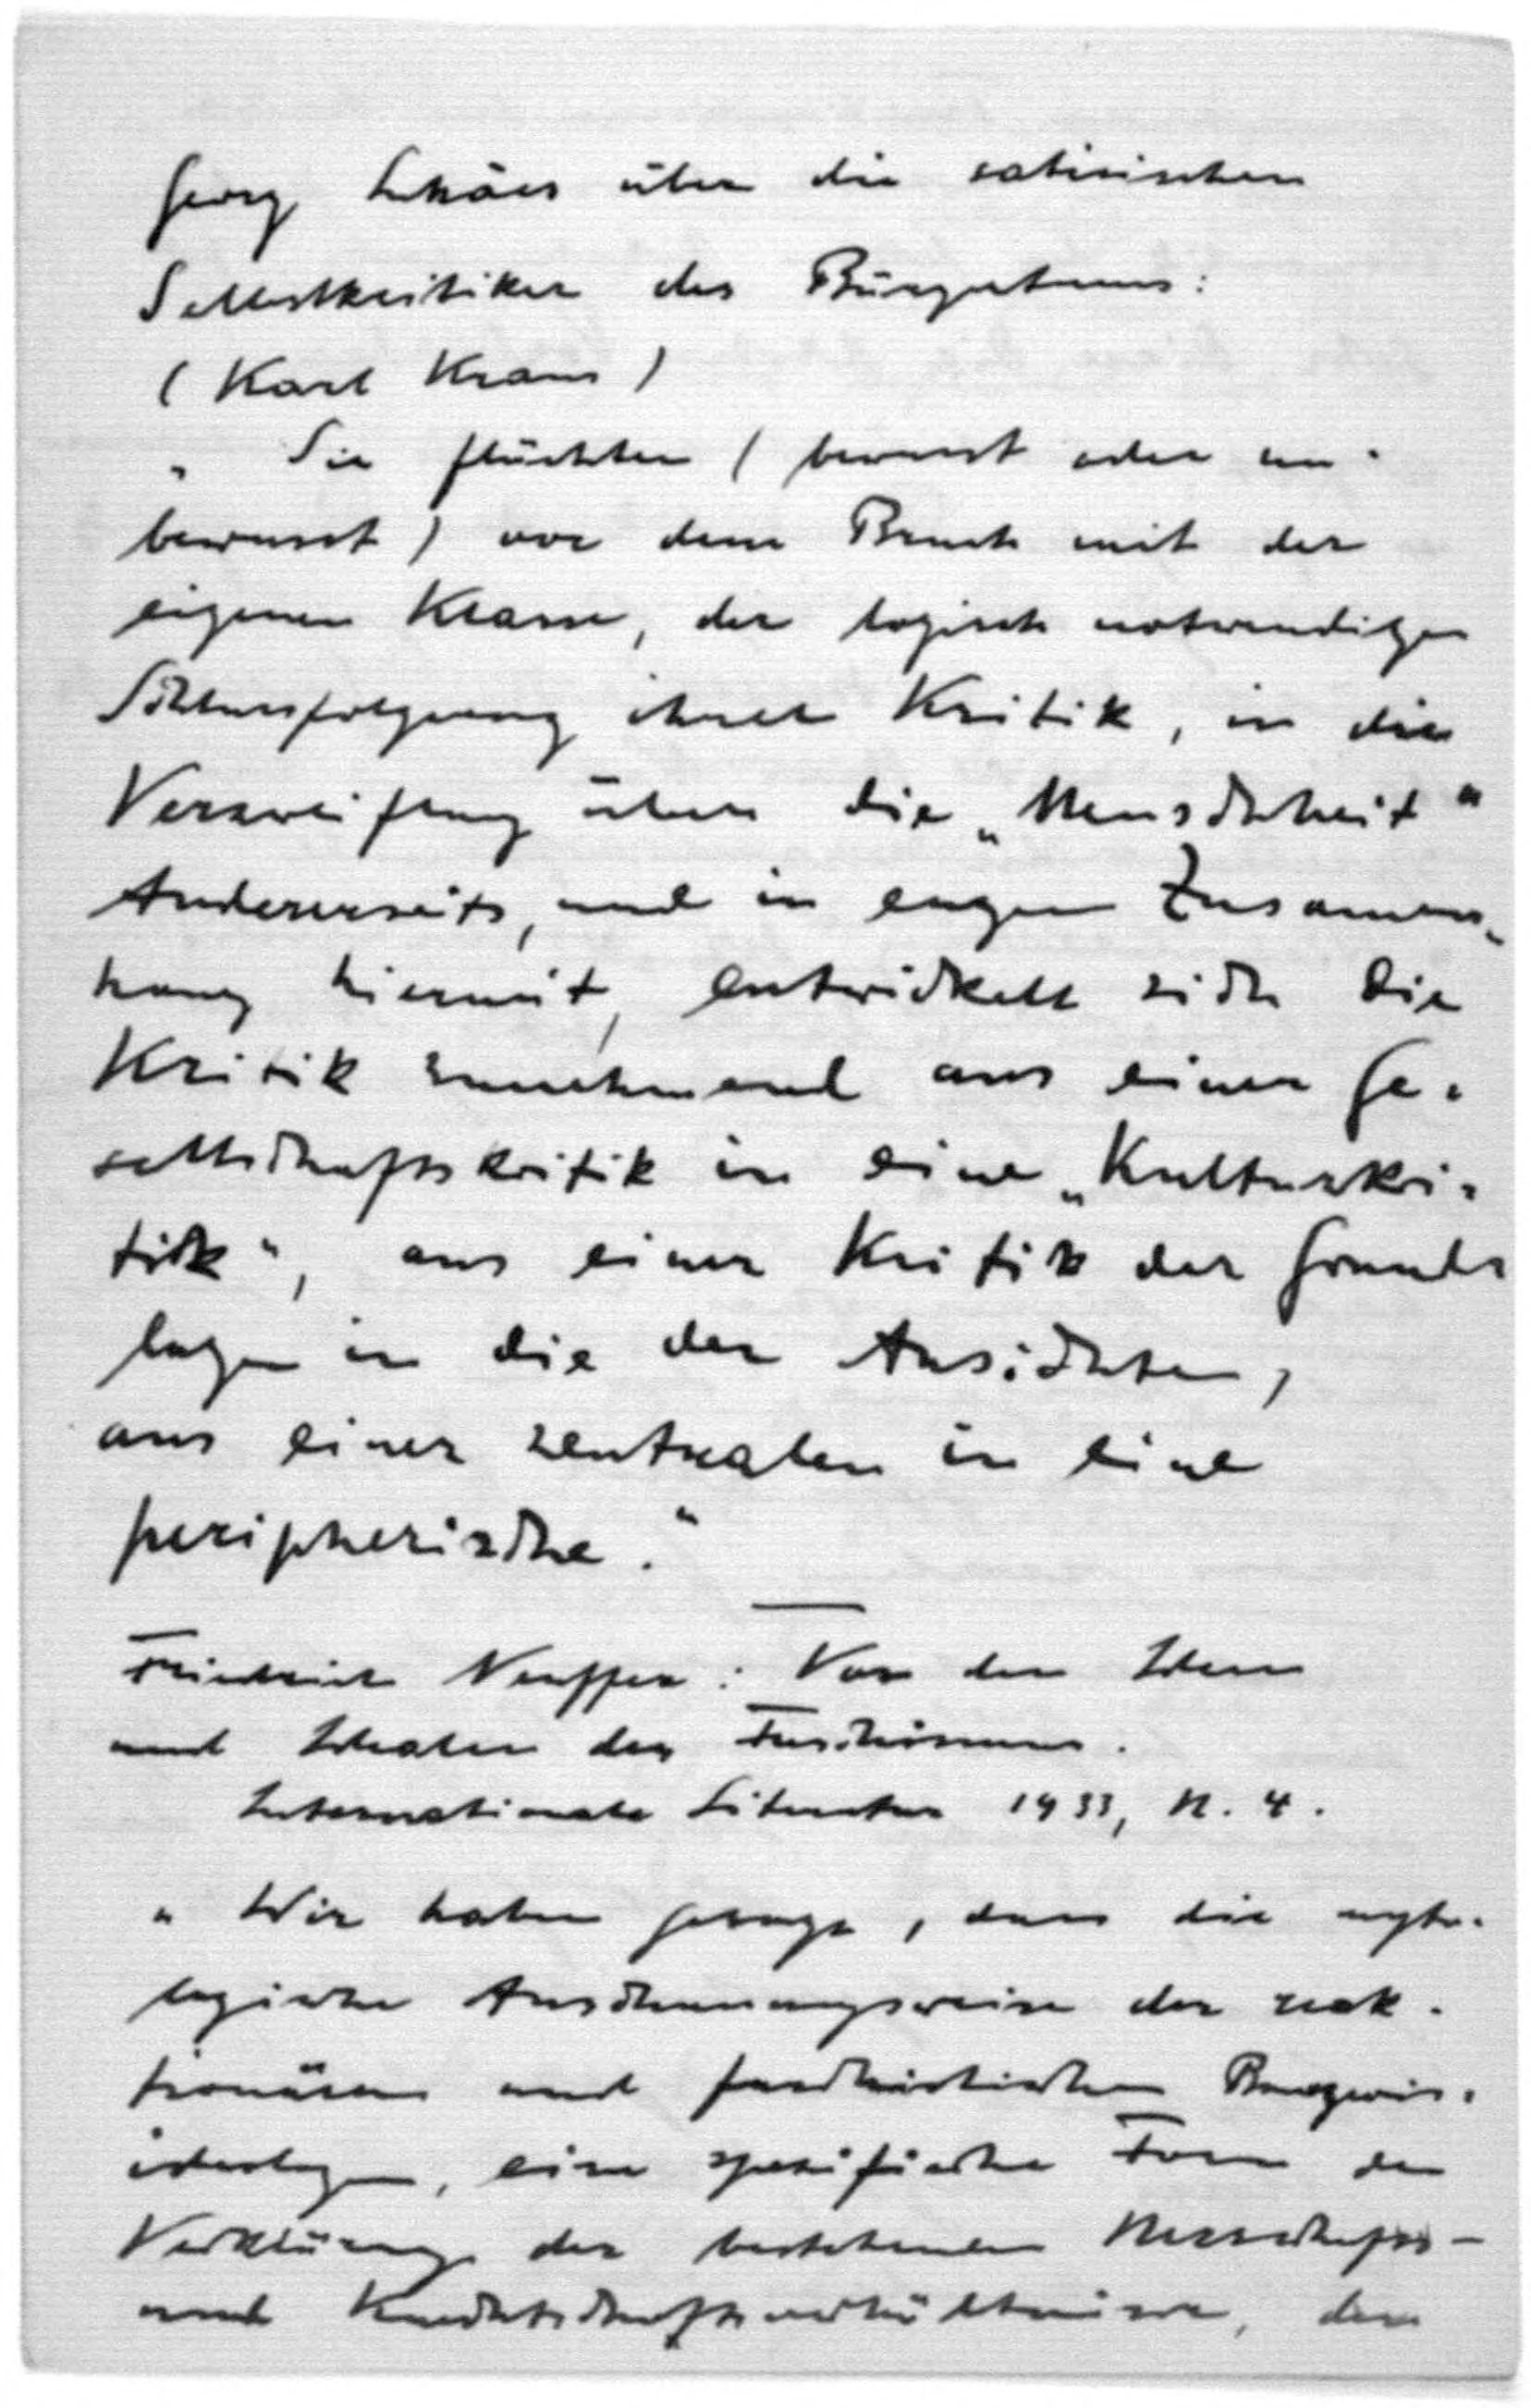 Georg Lukács über die satirischen
Selbstkritiker des Bürgertums:
(Karl Kraus)
„Sie flüchten (bewusst oder un-
bewusst) vor dem Bruch mit der
eigenen Klasse, der logisch notwendigen
Schlussfolgerung ihrer Kritik, in die
Verzweiflung über die „Menschheit"
Andererseits, und in engem Zusammen-
hang hiermit, entwickelt sich die
Kritik zunehmend aus einer Ge-
sellschaftskritik in eine „Kulturkri-
tik", aus einer Kritik der Grund-
lagen in die der Ansichten,
aus einer zentralen in eine
peripherische."
Friedrich Neuffer: Von den Ideen
und Idealen des Faschismus.
Internationale Literatur 1933, N. 4.
„Wir haben gesagt, dass die mytho-
logische Anschauungsweise der reak-
tionären und faschistischen Bourgeois-
ideologen, eine spezifische Form der
Verklärung der bestehenden Herrschafts-
und Knechtschaftsverhältnisse, der